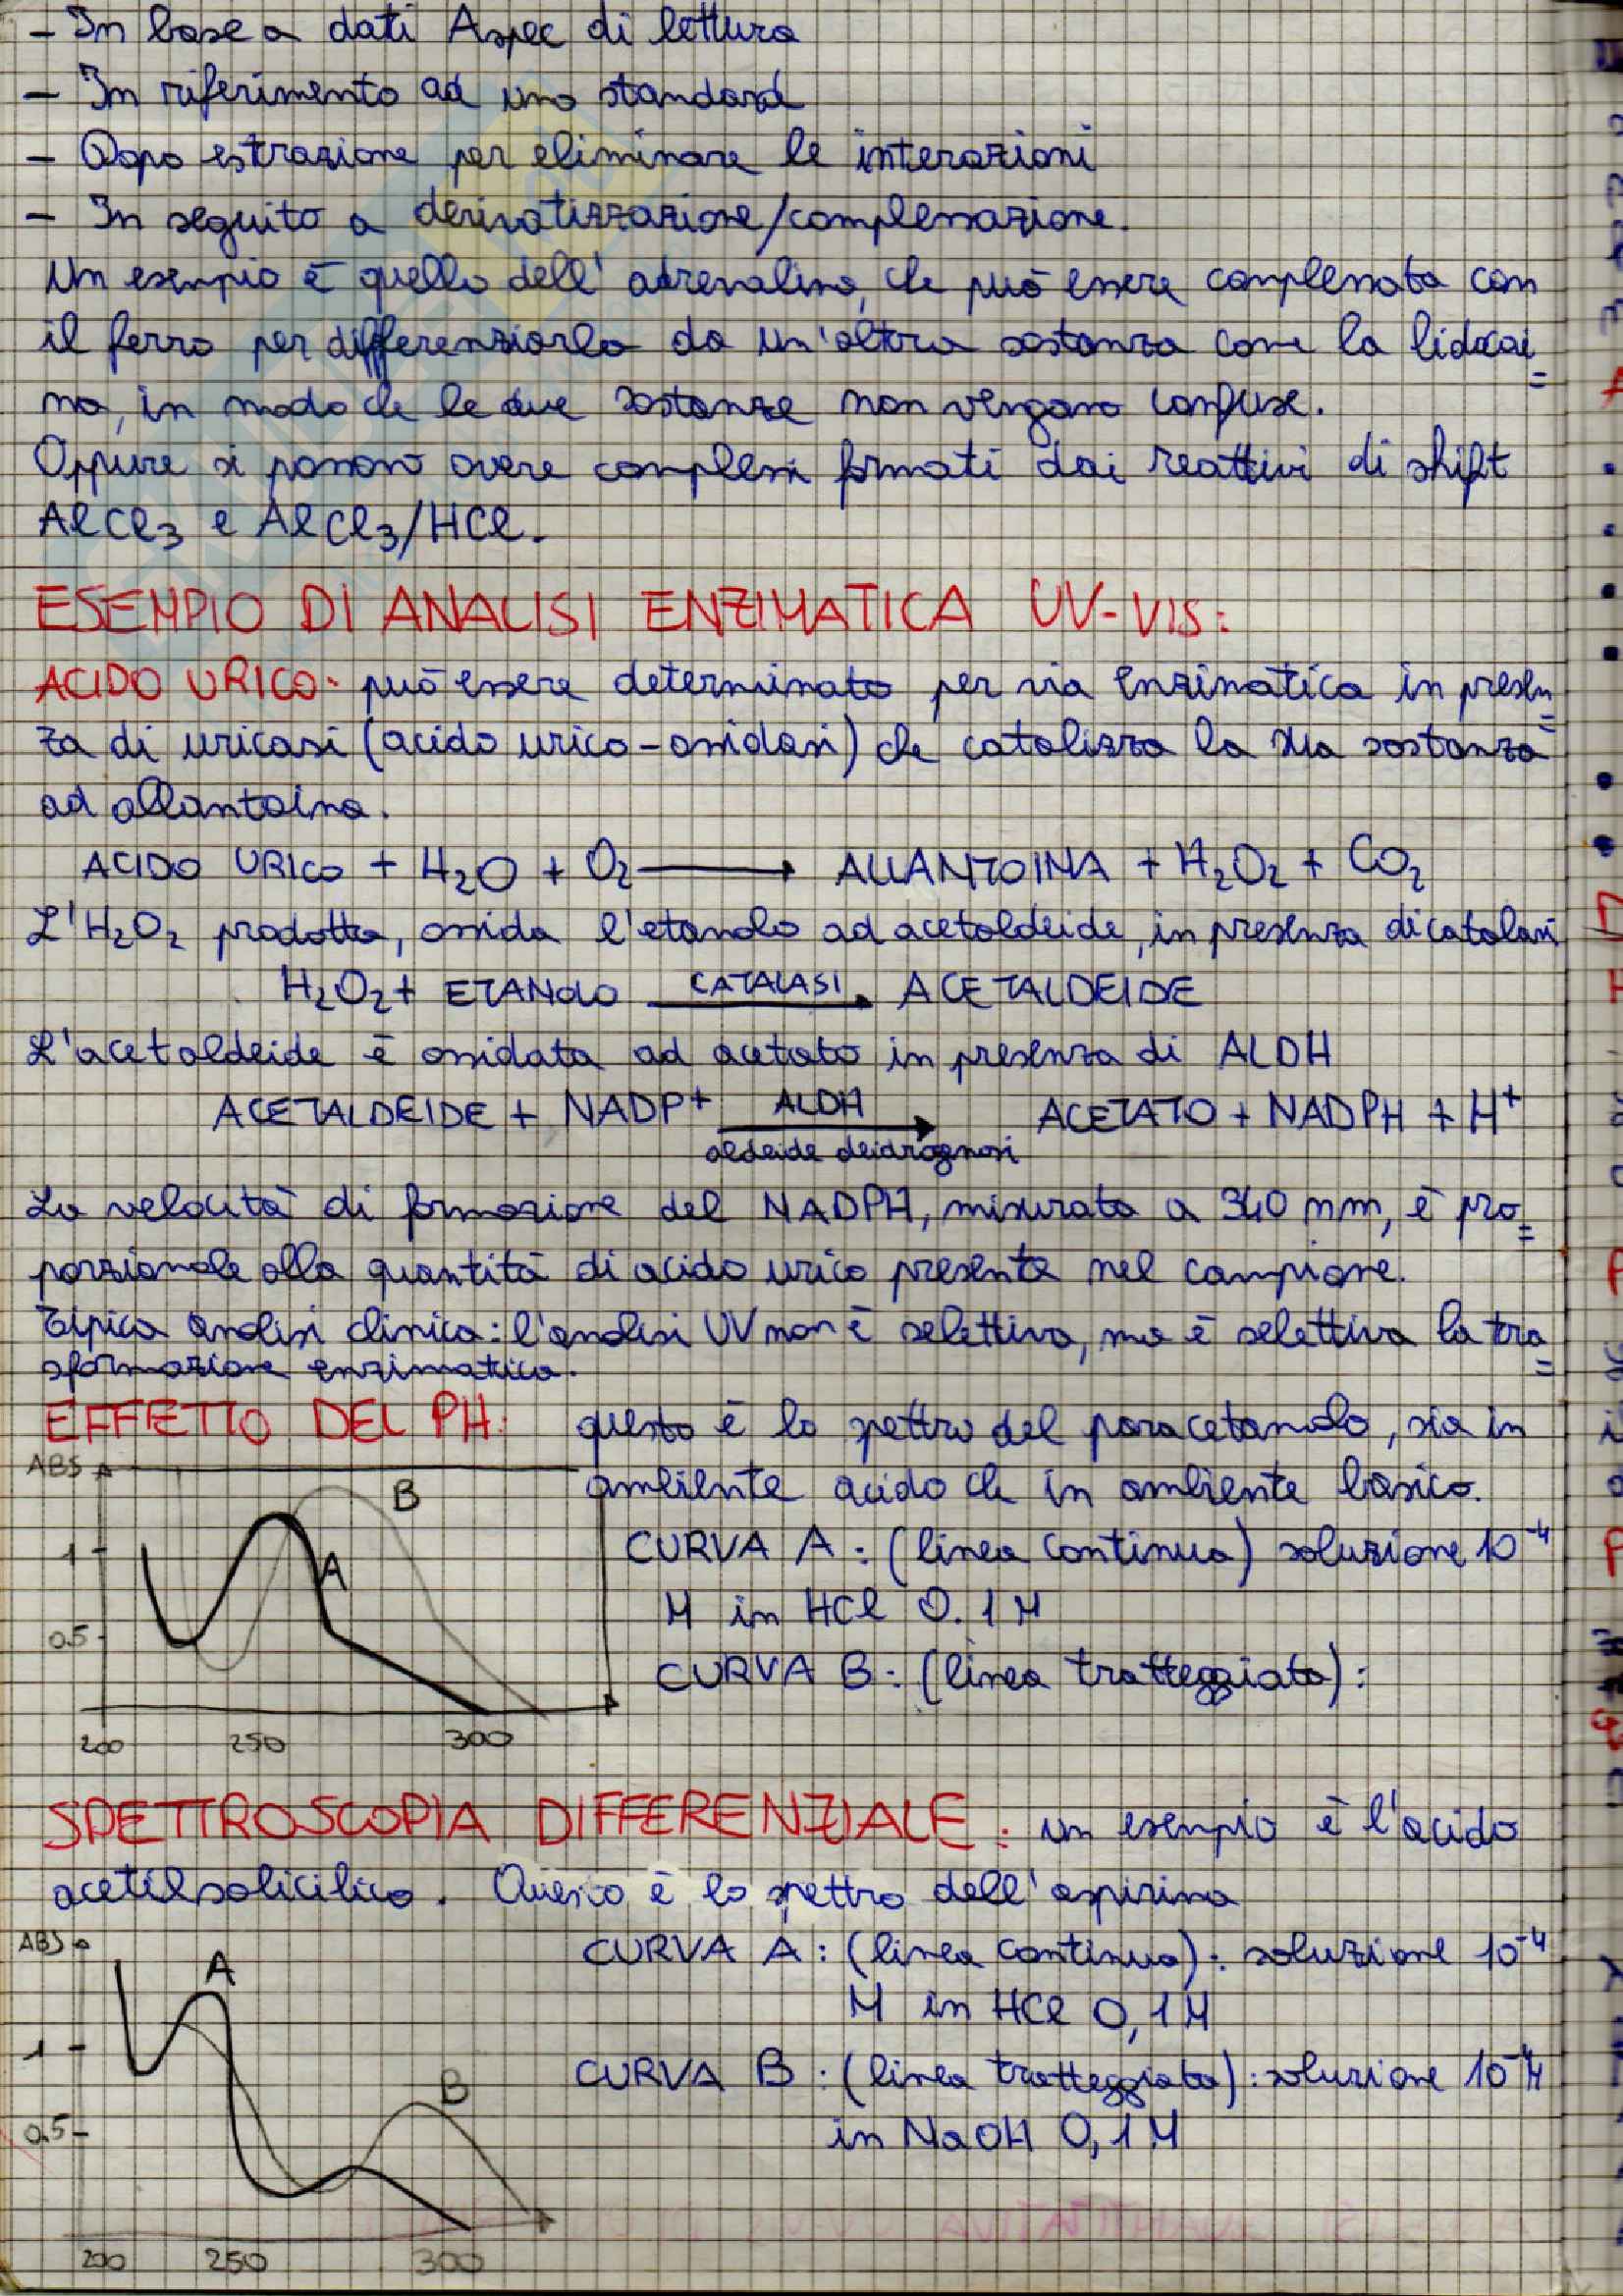 - In base a dati Aspec di lettura
- In riferimento ad uno standard
- Dopo estrazione per eliminare le interazioni
- In seguito a derivatizzazione/complessazione.
Un esempio è quello dell'adrenalina, che può essere complessata con
il ferro per differenziarla da un'altra sostanza come la lidocai=
na, in modo che le due sostanze non vengano confuse.
Oppure si possono avere complessi formati dai reattivi di shift
AlCl₃ e AlCl₃/HCl.
ESEMPIO DI ANALISI ENZIMATICA UV-VIS:
ACIDO URICO: può essere determinato per via enzimatica in presen=
za di uricasi (acido urico-ossidasi) che catalizza la sua sostanza
ad allantoina.
ACIDO URICO + H₂O + O₂ → ALLANTOINA + H₂O₂ + CO₂
L'H₂O₂ prodotta, ossida l'etanolo ad acetaldeide, in presenza di catalasi
H₂O₂ + ETANOLO CATALASI → ACETALDEIDE
L'acetaldeide è ossidata ad acetato in presenza di ALDH
ACETALDEIDE + NADP⁺ ALDH → ACETATO + NADPH + H⁺
aldeide deidrogenasi
La velocità di formazione del NADPH, misurata a 340 nm, è pro=
porzionale alla quantità di acido urico presente nel campione.
Tipica analisi clinica: l'analisi UV non è selettiva, ma è selettiva la tra=
sformazione enzimatica.
EFFETTO DEL PH: questo è lo spettro del paracetamolo, sia in
ambiente acido che in ambiente basico.
ABS
B
CURVA A: (linea continua) soluzione 10⁻⁴
1
A
M in HCl 0.1M
0.5
CURVA B: (linea tratteggiata):
200 250 300
SPETTROSCOPIA DIFFERENZIALE: un esempio è l'acido
acetilsalicilico. Questo è lo spettro dell'aspirina
ABS
CURVA A: (linea continua): soluzione 10⁻⁴
A
M in HCl 0,1M
1
CURVA B: (linea tratteggiata): soluzione 10⁻⁴M
B
0.5
in NaOH 0,1M
200 250 300